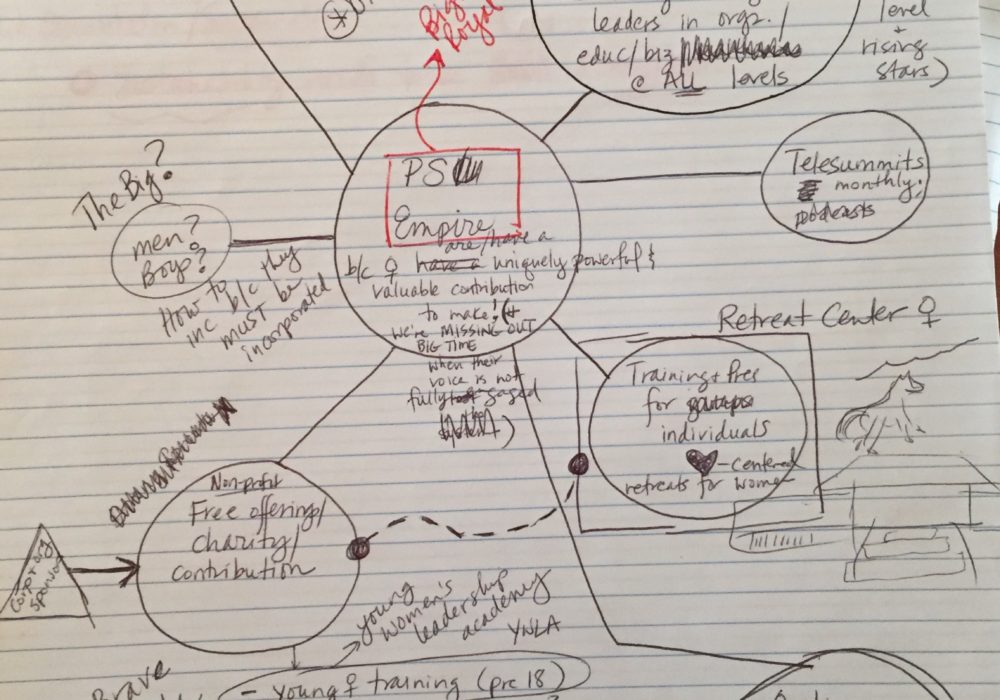 Big
Royal
leaders in orgz./
educ/biz
@ ALL levels
level
+
rising
stars)
PS
Empire
are/have a
b/c ♀ have a uniquely powerful &
valuable contribution
to make! (+
WE'RE MISSING OUT
BIG TIME
when their
voice is not
fully gaged
)
Telesummits
monthly;
podcasts
The Big?
men?
Boys?
How to
inc b/c they
MUST be
incorporated
Retreat Center ♀
Training + Pres
for groups
individuals
♥-centered
retreats for women
Non-profit
Free offering/
charity/
contribution
Corp + org
sponsors
young
women's
leadership
academy
YWLA
Brave
- young ♀ training (pre 18)